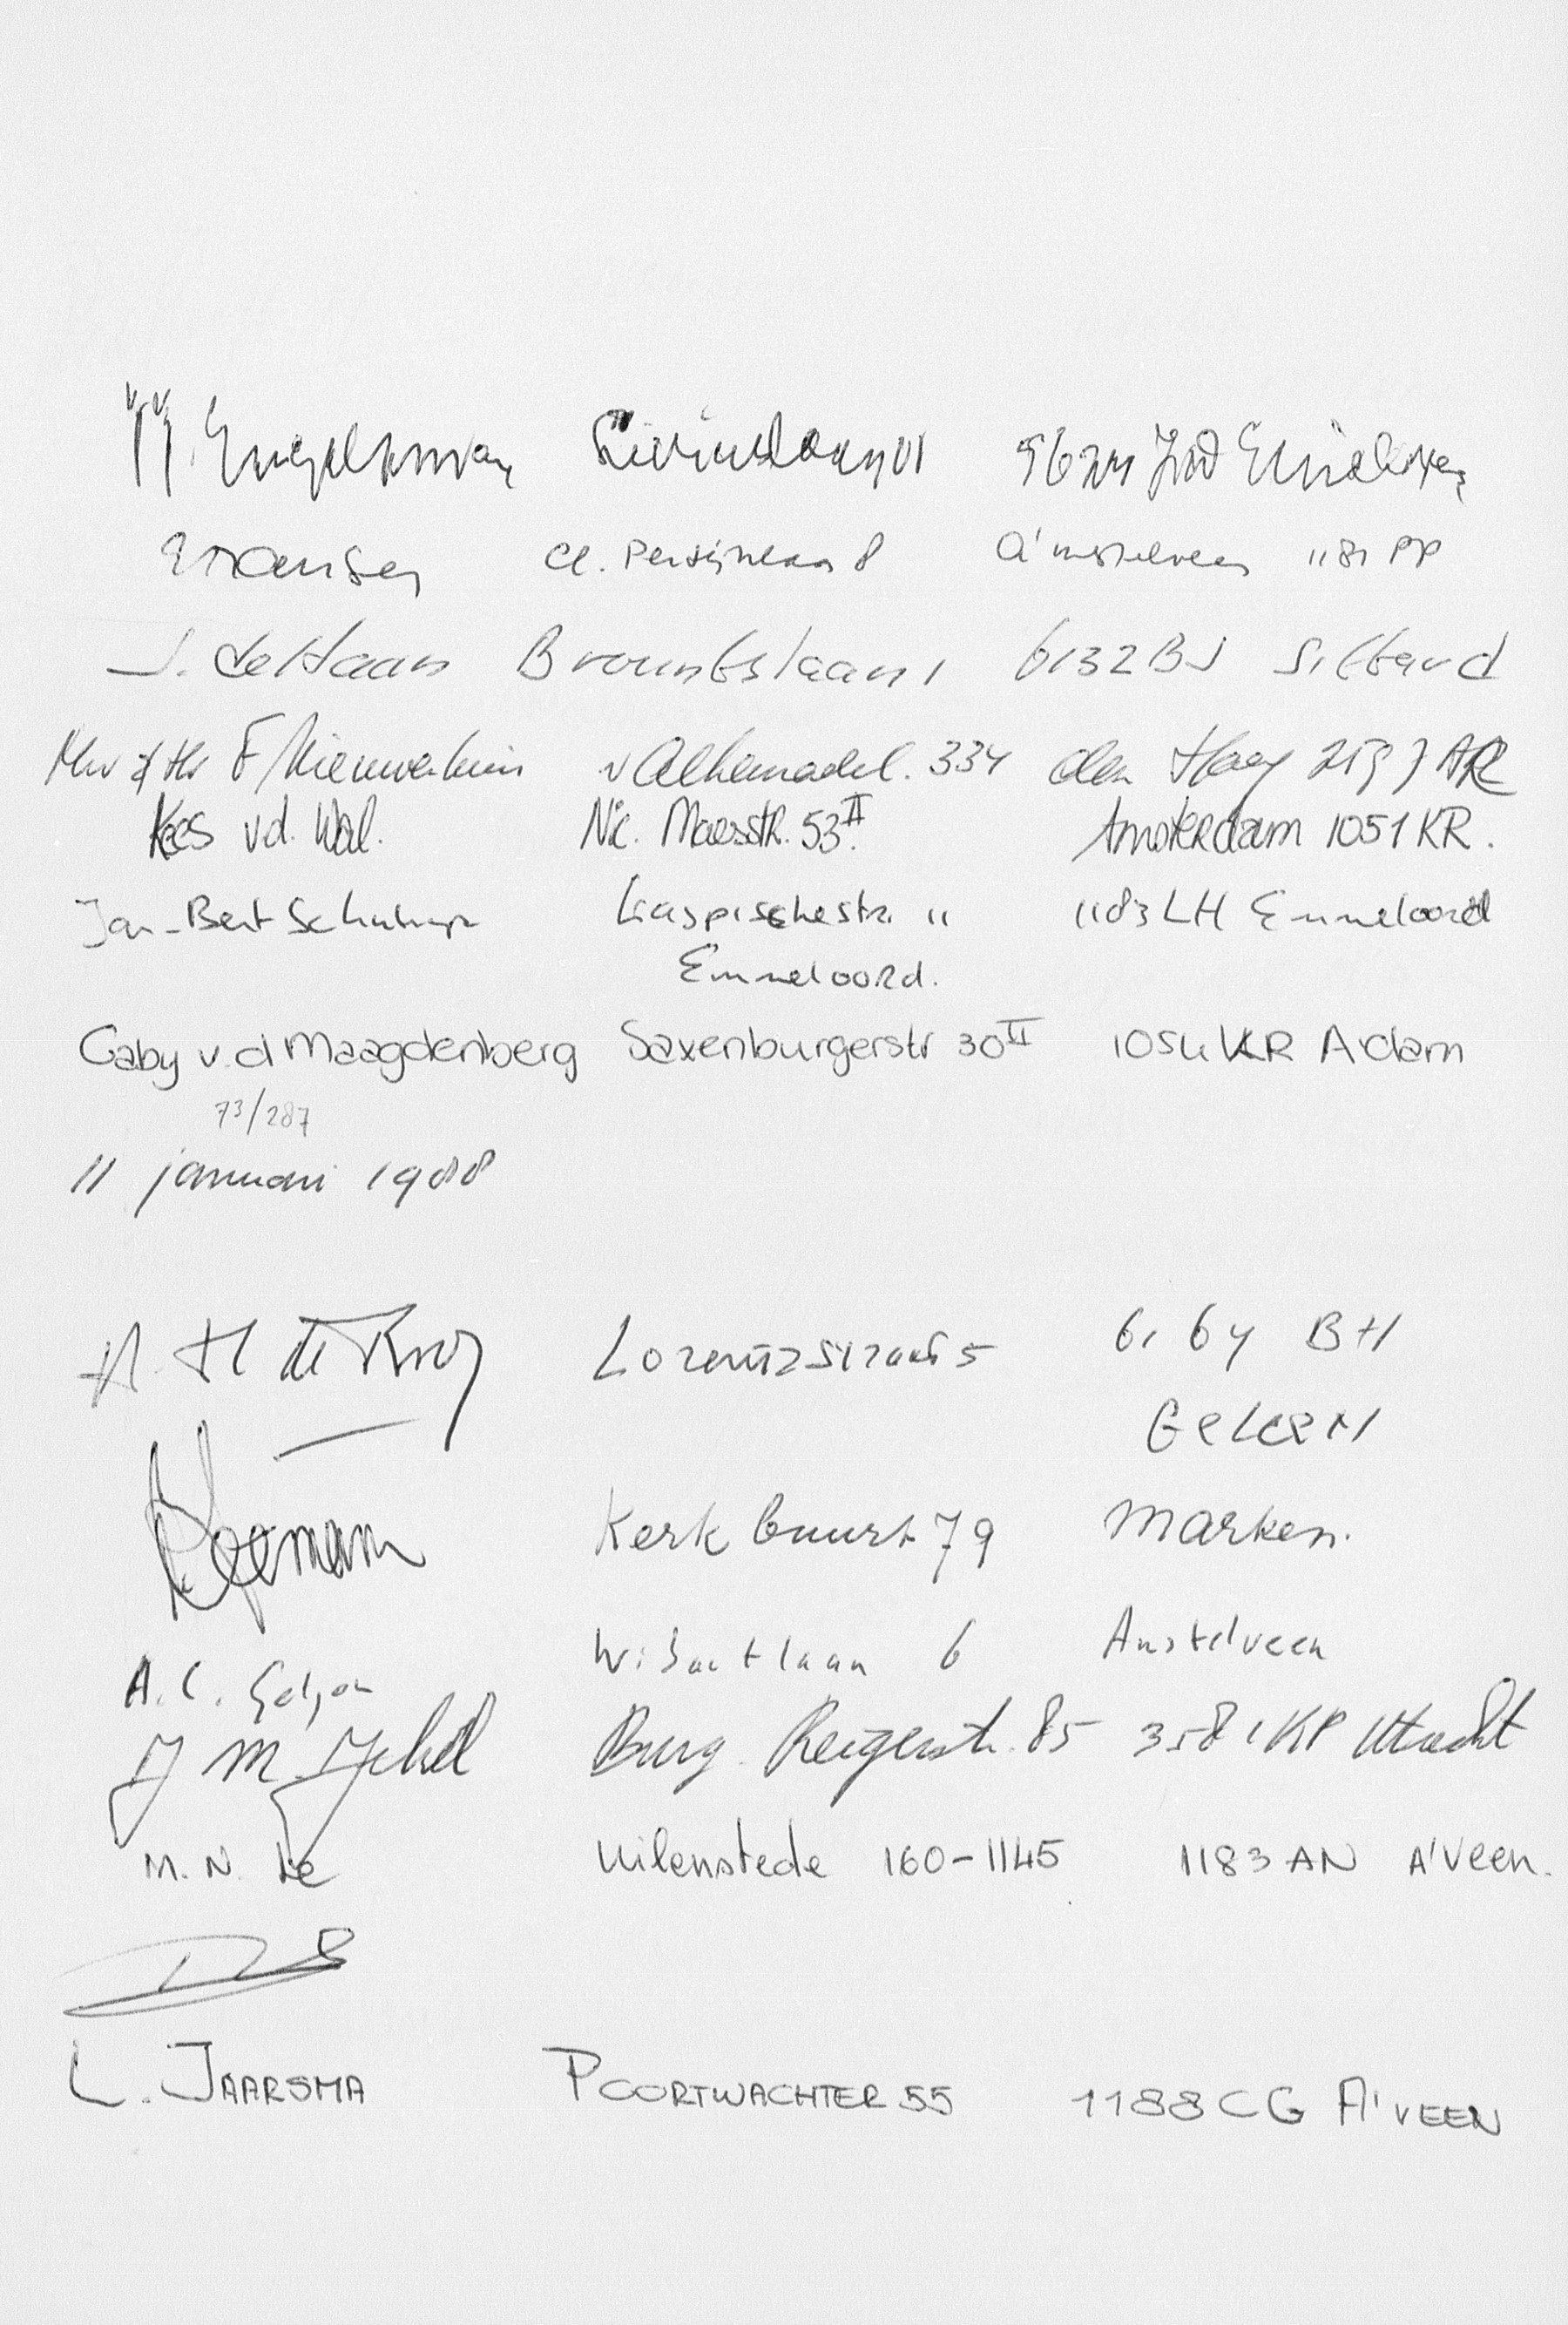 Engelsman 
Cl. Persijnlaan 8 A'mstelveen 1181 PP
J. de Haan 6132 BJ Sittard
F Nieuwenhuis v Alkemadel. 334 den Haag 2597 AR
Kees vd. Wal. Nic. Maesstr. 53 II. Amsterdam 1051 KR.
Jan-Bert 1183 LH Emmeloord
Emmeloord.
Gaby v.d Maagdenberg Saxenburgerstr 30 II 1054 KR A'dam
73/287
11 januari 1988
Lorentzstraat 5 6164 BH
Geleen
Kerkbuurt 79 Marken.
A.C. Wibautlaan 6 Amstelveen
J M Burg. Reigerstr. 85 3581 KP Utrecht
M. N. Le Uilenstede 160-1145 1183 AN A'Veen.
L. JAARSMA POORTWACHTER 55 1188 CG A'VEEN